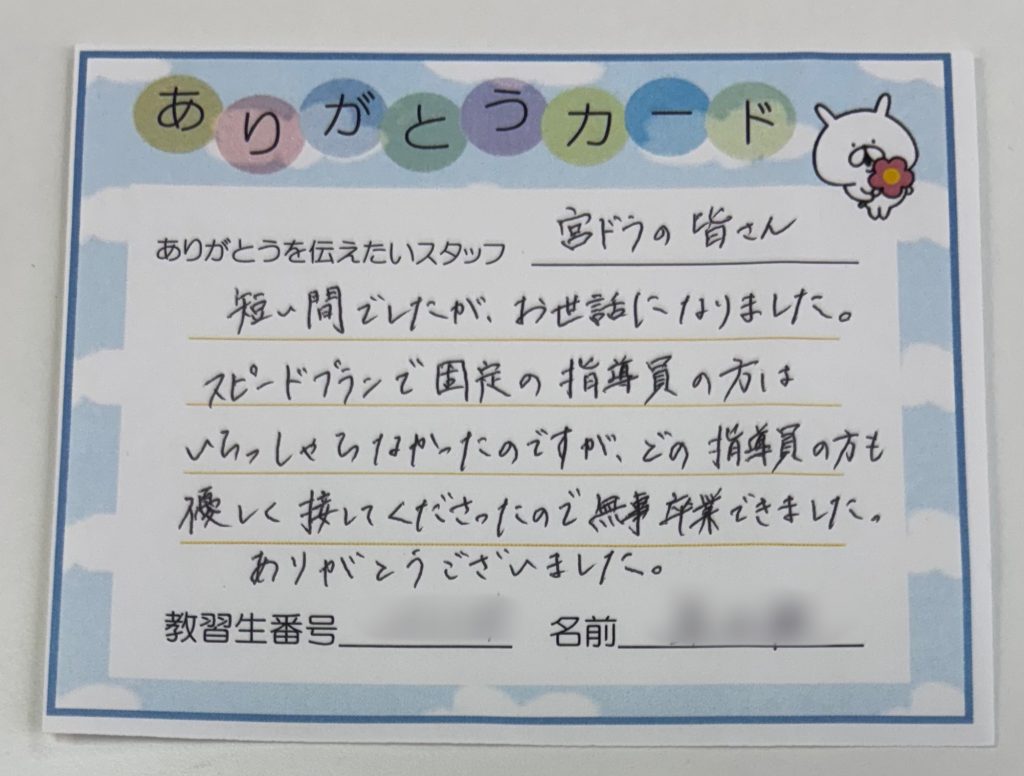 ありがとうカード
ありがとうを伝えたいスタッフ 宮ドラの皆さん
短い間でしたが、お世話になりました。
スピードプランで固定の指導員の方は
いらっしゃらなかったのですが、どの指導員の方も
優しく接してくださったので無事卒業できました。
ありがとうございました。
教習生番号 名前